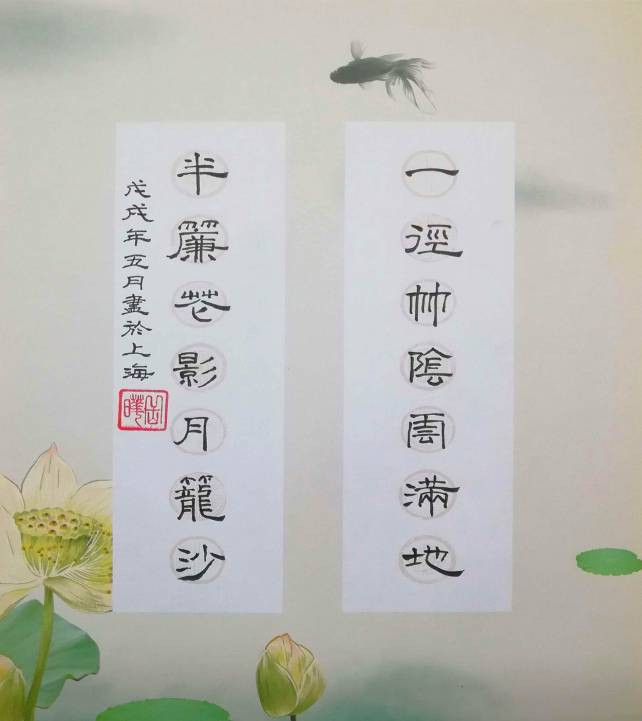 一徑竹陰雲滿地
半簾花影月籠沙
戊戌年五月書於上海